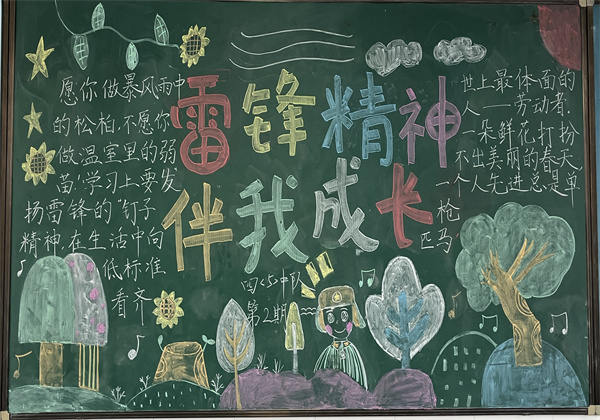 雷锋精神
伴我成长
愿你做暴风雨中
的松柏,不愿你
做温室里的弱
苗!学习上要发
扬雷锋的“钉子
精神,在生活中向
低标准
看齐
世上最体面的
人——劳动者.
一朵鲜花打扮
不出美丽的春天
一个人先进总是单
枪
匹马
四<5>中队
第2期